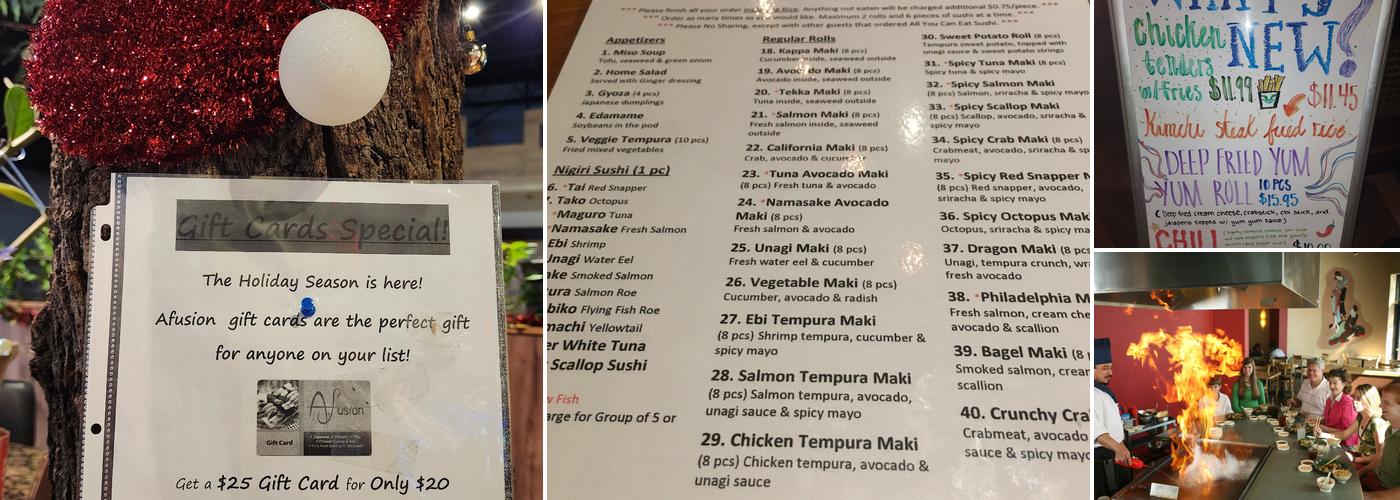 Gift Cards Special!
The Holiday Season is here!
Afusion gift cards are the perfect gift
for anyone on your list!
Afusion
Gift Card
Get a $25 Gift Card for Only $20
*** Please finish all your order including Rice. Anything not eaten will be charged additional $0.75/piece. ***
*** Order as many times as you would like. Maximum 2 rolls and 6 pieces of sushi at a time. ***
*** Please No Sharing, except with other guests that ordered All You Can Eat Sushi. ***
Appetizers
1. Miso Soup
Tofu, seaweed & green onion
2. Home Salad
Served with Ginger dressing
3. Gyoza (4 pcs)
Japanese dumplings
4. Edamame
Soybeans in the pod
5. Veggie Tempura (10 pcs)
Fried mixed vegetables
Nigiri Sushi (1 pc)
6. *Tai Red Snapper
7. Tako Octopus
*Maguro Tuna
*Namasake Fresh Salmon
Ebi Shrimp
Unagi Water Eel
ake Smoked Salmon
ura Salmon Roe
biko Flying Fish Roe
machi Yellowtail
er White Tuna
Scallop Sushi
w Fish
arge for Group of 5 or
Regular Rolls
18. Kappa Maki (8 pcs)
Cucumber inside, seaweed outside
19. Avocado Maki (8 pcs)
Avocado inside, seaweed outside
20. *Tekka Maki (8 pcs)
Tuna inside, seaweed outside
21. *Salmon Maki (8 pcs)
Fresh salmon inside, seaweed
outside
22. California Maki (8 pcs)
Crab, avocado & cucumber
23. *Tuna Avocado Maki
(8 pcs) Fresh tuna & avocado
24. *Namasake Avocado
Maki (8 pcs)
Fresh salmon & avocado
25. Unagi Maki (8 pcs)
Fresh water eel & cucumber
26. Vegetable Maki (8 pcs)
Cucumber, avocado & radish
27. Ebi Tempura Maki
(8 pcs) Shrimp tempura, cucumber &
spicy mayo
28. Salmon Tempura Maki
(8 pcs) Salmon tempura, avocado,
unagi sauce & spicy mayo
29. Chicken Tempura Maki
(8 pcs) Chicken tempura, avocado &
unagi sauce
30. Sweet Potato Roll (8 pcs)
Tempura sweet potato, topped with
unagi sauce & sweet potato strings
31. *Spicy Tuna Maki (8 pcs)
Spicy tuna & spicy mayo
32. *Spicy Salmon Maki
(8 pcs) Salmon, sriracha & spicy mayo
33. *Spicy Scallop Maki
(8 pcs) Scallop, avocado, sriracha &
spicy mayo
34. Spicy Crab Maki (8 pcs)
Crabmeat, avocado, sriracha & sp
mayo
35. *Spicy Red Snapper M
(8 pcs) Red snapper, avocado,
sriracha & spicy mayo
36. Spicy Octopus Mak
Octopus, sriracha & spicy m
37. Dragon Maki (8 p
Unagi, tempura crunch, wra
fresh avocado
38. *Philadelphia M
Fresh salmon, cream che
avocado & scallion
39. Bagel Maki (8 p
Smoked salmon, crear
scallion
40. Crunchy Cra
Crabmeat, avocado,
sauce & spicy mayo
WHAT'S
NEW!
Chicken
tenders
w/fries $11.99
$11.45
Kimchi steak fried rice
DEEP FRIED YUM
YUM ROLL 10 PCS
$15.95
(Deep fried cream cheese, crabstick, ebi stick, and
jalapeno topped w/ yum yum sauce)
CHILI